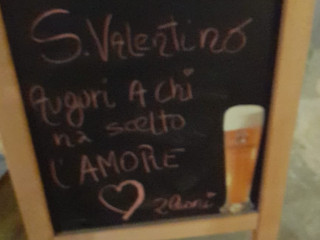 S. Valentino
Auguri A chi
ha scelto
l'AMORE